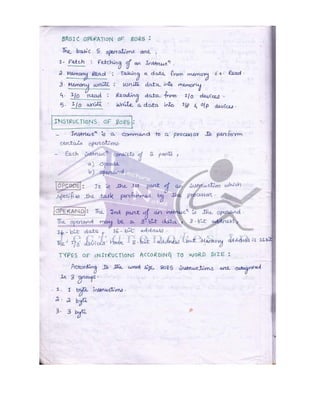 BASIC OPERATION OF 8085 :
The basic 5 operations are ,
1. Fetch : Fetching of an Instrucⁿ.
2. Memory Read : Taking a data from memory i.e. Read.
3. Memory write : Write data into memory
4. I/O read : Reading data from I/O devices.
5. I/O write : Write a data into I/P & O/P devices.
INSTRUCTIONS OF 8085 :
- Instrucⁿ is a command to a processor to perform
certain operations
- Each instrucⁿ consists of 2 parts ,
a) opcode
b) operand
OPCODE : It is the 1st part of an instruction which
specifies the task performed by the processor.
OPERAND : The 2nd part of an instrucⁿ is the operand.
The operand may be a 8-bit data, 8-bit address,
16-bit data , 16-bit address.
The I/O devices have 8-bit address but Memory address is 16bit
TYPES OF INSTRUCTIONS ACCORDING TO WORD SIZE :
According to the word size, 8085 instructions are assigned
in 3 groups
1. 1 byte instructions.
2. 2 byte
3. 3 byte